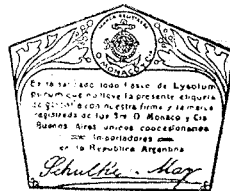 MARCA REGISTRADA
D. MONACO & Cia
Es falsificado todo frasco de Lysolum
purum que no lleve la presente etiqueta
de garantía con nuestra firma y la marca
registrada de los Sres D. Monaco y Cia
Buenos Aires unicos concesionarios
Importadores
en la Republica Argentina
Schülke & Mayr